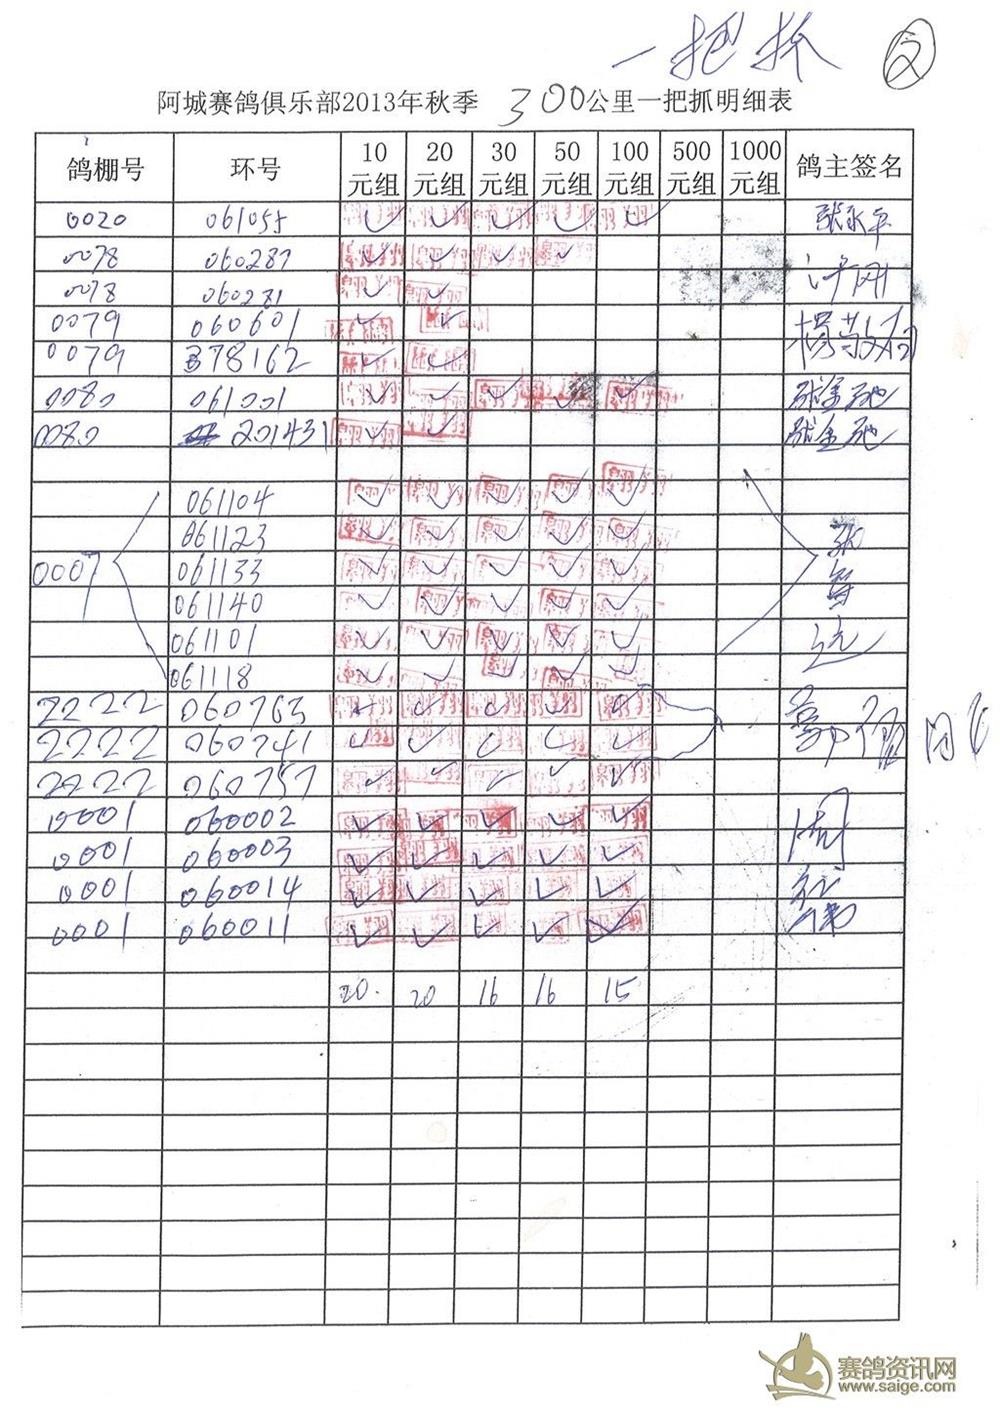 一把抓
阿城赛鸽俱乐部2013年秋季 300公里一把抓明细表
鸽棚号 环号 10元组 20元组 30元组 50元组 100元组 500元组 1000元组 鸽主签名
0020 061055 ✓ ✓ ✓ ✓ ✓ 张永平
0078 060287 ✓ ✓ ✓ ✓
0078 060281 ✓ ✓ 刚
0079 060601 ✓ ✓
0079 378162 ✓ ✓
0080 061001 ✓ ✓ ✓ ✓ ✓ 张金
0080 201431 ✓ ✓ 张金
061104 ✓ ✓ ✓ ✓ ✓
061123 ✓ ✓ ✓ ✓ ✓
0007 061133 ✓ ✓ ✓ ✓ ✓
061140 ✓ ✓ ✓ ✓ ✓
061101 ✓ ✓ ✓ ✓ ✓
061118 ✓ ✓ ✓ ✓ ✓
2222 060763 ✓ ✓ ✓ ✓ ✓
2222 060741 ✓ ✓ ✓ ✓ ✓
2222 060757 ✓ ✓ ✓ ✓ ✓
0001 060002 ✓ ✓ ✓ ✓ ✓ 周
0001 060003 ✓ ✓ ✓ ✓ ✓
0001 060014 ✓ ✓ ✓ ✓ ✓
0001 060011 ✓ ✓ ✓ ✓ ✓
20. 20 16 16 15
赛鸽资讯网
www.saige.com